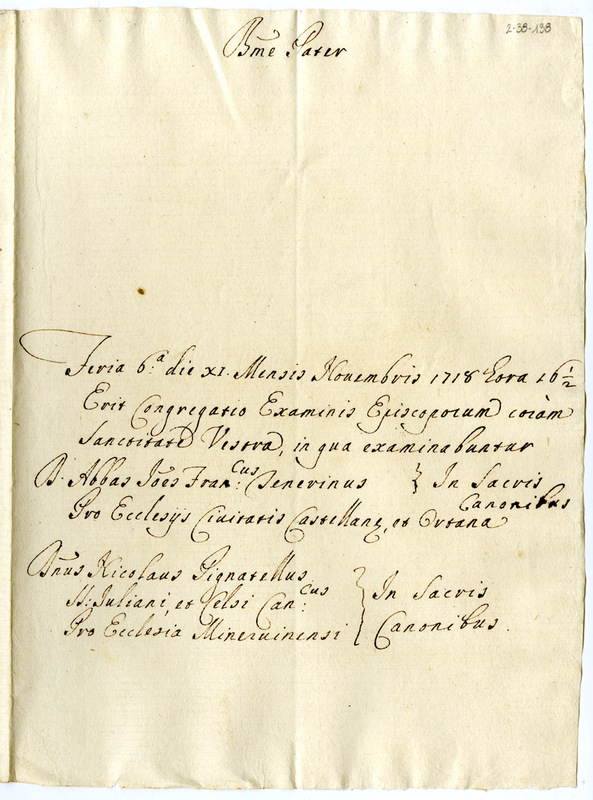 2-38-138
Bm̃e Pater
Feria 6.ª die XI. Mensis Novembris 1718 hora 16 1/2
Erit Congregatio Examinis Episcoporum coràm
Sanctitate Vestra, in qua examinabuntur
D. Abbas Joẽs Fran:cus Tenerinus } In Sacris
Canonibus
Pro Ecclesijs Civitatis Castellanę, et Ortana
Dnus Nicolaus Pignatellus
SS: Juliani, et Celsi Can:cus } In Sacris
Pro Ecclesia Mineruinensi Canonibus.